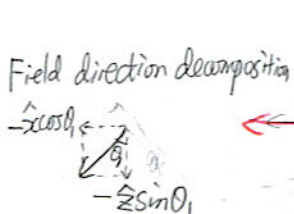 Field direction decomposition
-x̂cosθ₁
θ₁
-ẑsinθ₁